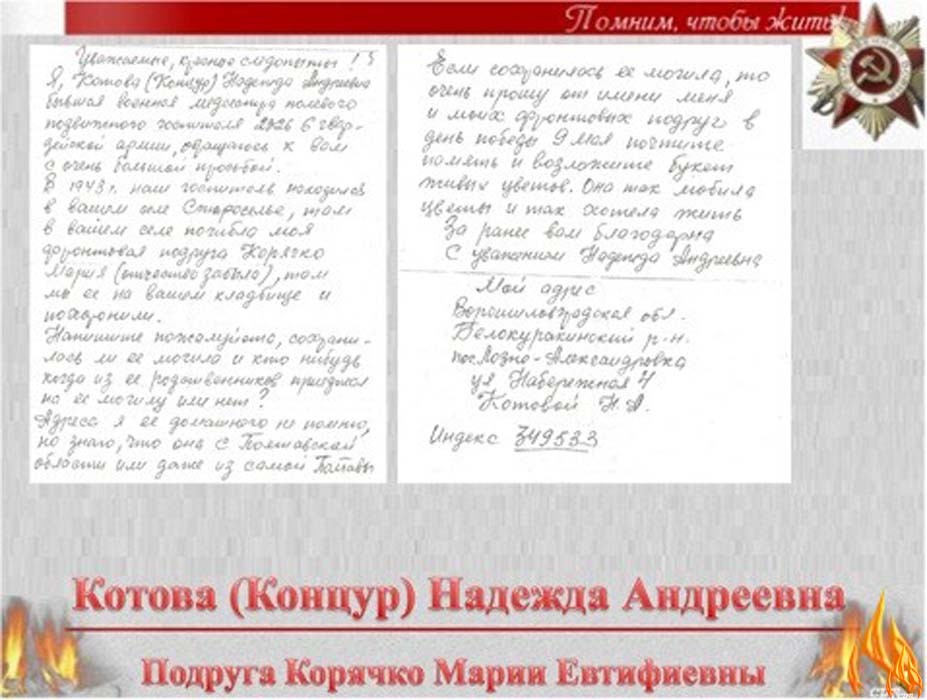 Помним, чтобы жить!
Уважаемые, красные следопыты!
Я, Котова (Концур) Надежда Андреевна
бывшая военная медсестра полевого
подвижного госпиталя 2926 6 гвар-
дейской армии, обращаюсь к вам
с очень большой просьбой.
В 1943 г. наш госпиталь находился
в вашем селе Староселье, там
в вашем селе погибла моя
фронтовая подруга Корячко
Мария (отчество забыла), там
мы ее на вашем кладбище и
похоронили.
Напишите пожалуйста, сохрани-
лась ли ее могила и кто нибудь
когда из ее родственников приезжал
на ее могилу или нет?
Адреса я ее домашнего не помню,
но знаю, что она с Полтавской
области или даже из самой Полтавы
Если сохранилась ее могила, то
очень прошу от имени меня
и моих фронтовых подруг в
день победы 9 мая почтите
память и возложите букет
живых цветов. Она так любила
цветы и так хотела жить
За ранее вам благодарна
С уважением Надежда Андреевна
Мой адрес
Ворошиловградская обл.
Белокуракинский р-н.
пос Лозно-Александровка
ул Набережная 4
Котовой Н. А.
Индекс 349533
Котова (Концур) Надежда Андреевна
Подруга Корячко Марии Евтифиевны